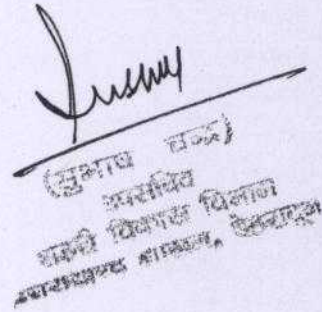 (सुभाष चन्द्र)
उपसचिव
शहरी विकास विभाग
उत्तराखण्ड शासन, देहरादून